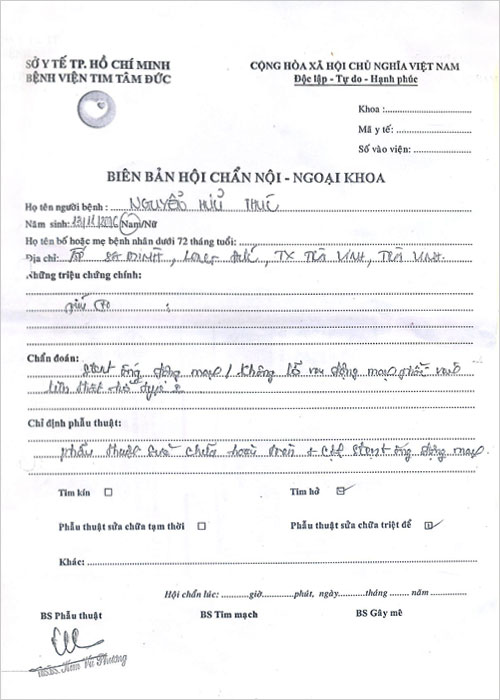 SỞ Y TẾ TP. HỒ CHÍ MINH
BỆNH VIỆN TIM TÂM ĐỨC
CỘNG HÒA XÃ HỘI CHỦ NGHĨA VIỆT NAM
Độc lập - Tự do - Hạnh phúc
Khoa :
Mã y tế:
Số vào viện:
BIÊN BẢN HỘI CHẨN NỘI - NGOẠI KHOA
Họ tên người bệnh : NGUYỄN HỮU THỨC
Năm sinh: Nam/Nữ
Họ tên bố hoặc mẹ bệnh nhân dưới 72 tháng tuổi:
Địa chỉ: , Long Đức, TX TRÀ VINH, TRÀ VINH.
Những triệu chứng chính:
Chẩn đoán: Stent ống động mạch / Không lỗ van động mạch phổi
Chỉ định phẫu thuật:
phẫu thuật sửa chữa hoàn toàn + stent ống động mạch.
Tim kín ☐ Tim hở ☑
Phẫu thuật sửa chữa tạm thời ☐ Phẫu thuật sửa chữa triệt để ☑
Khác:
Hội chẩn lúc: giờ phút, ngày tháng năm
BS Phẫu thuật BS Tim mạch BS Gây mê